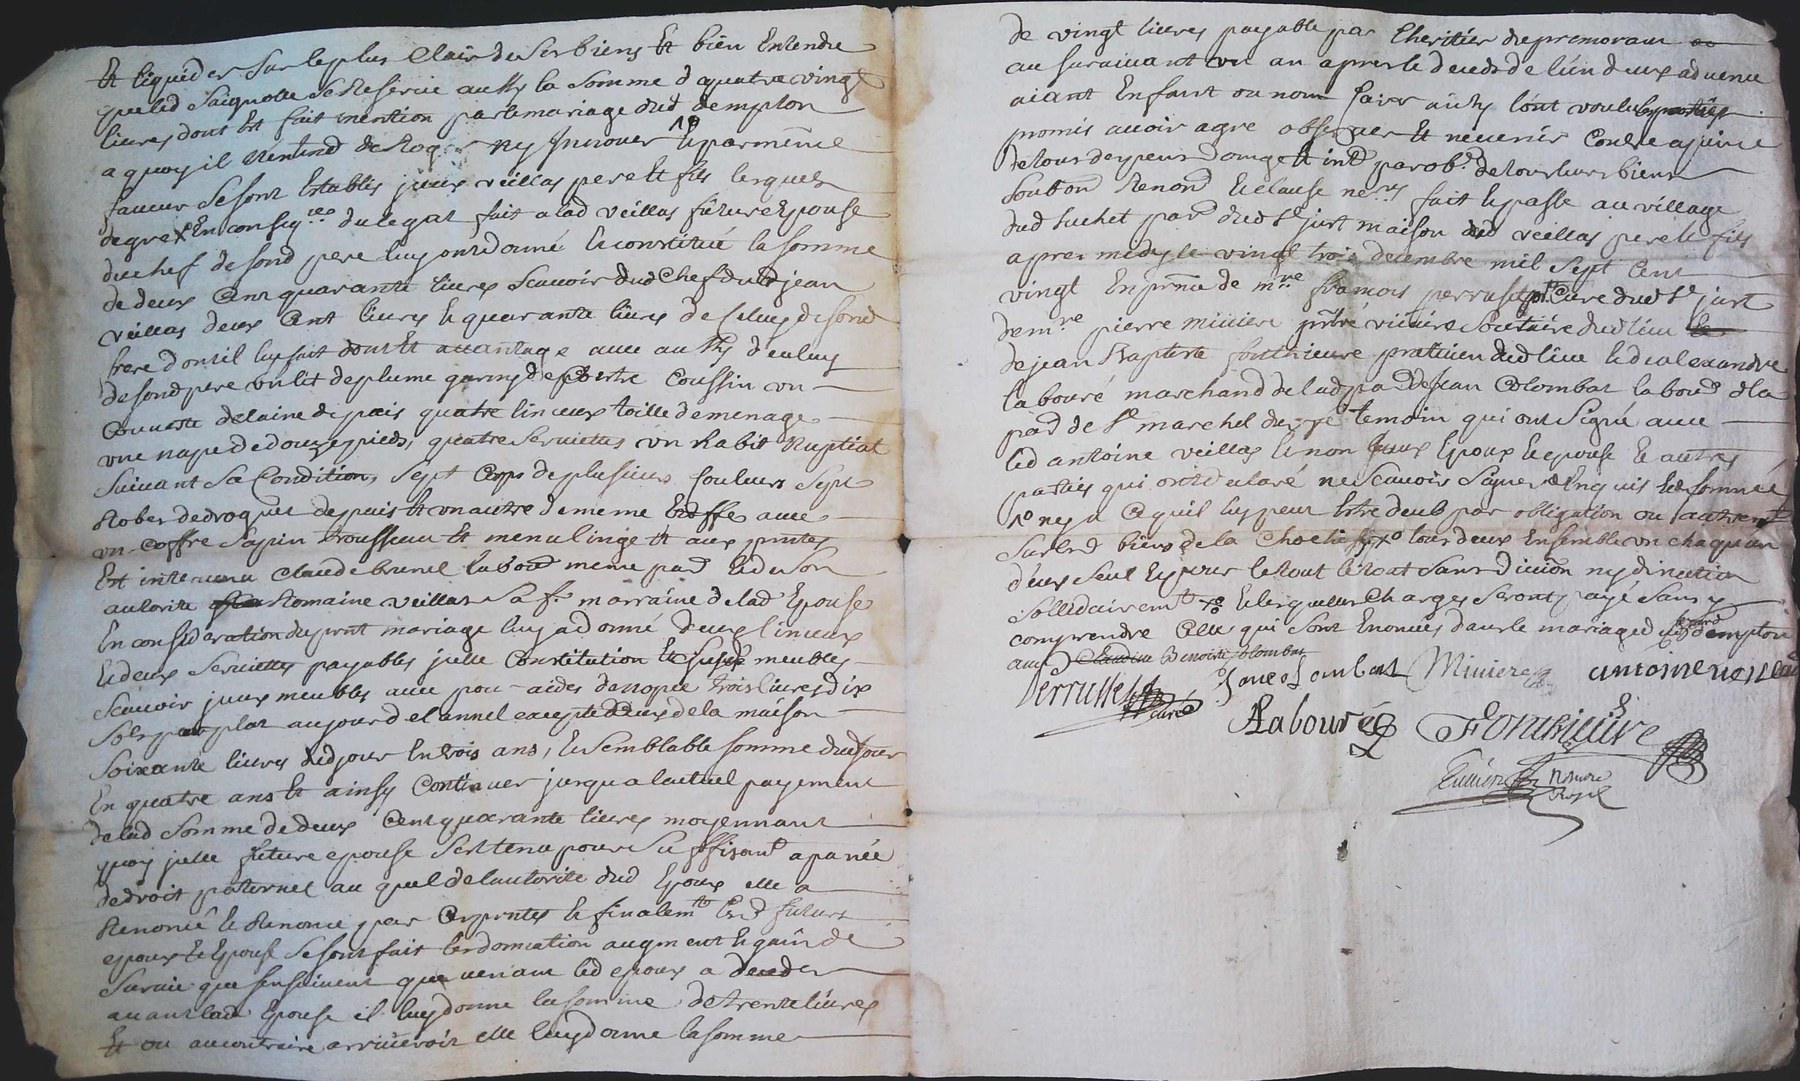 Et liquider sur le plus Clair de ses biens Et bien Entendu
que led Saignolle se Reserve au sy la Somme d quatre vingt
livres dont Est fait mention par le mariage dud dempton
a quoy il n'entend de Roger ny Innover 1° Et par mesme
faveur se sont Establis jceux veillas pere Et fils lesquels
de gre x En conseq.ce du legat fait a lad veillas future Epouse
du chef de fond pere luy ont donné Et constitué la somme
de deux Cent quarante livres scavoir dud Chef dud jean
veillas deux Cent livres Et quarante livres de Celuy de fond
frere dont il luy fait don Et avantage avec au sy d'euluy
defond pere un lit de plume garny de Coussin un
Couverte de laine de pais quatre linceux toille de menage
une nape de douze pieds, quatre serviettes un habit Nuptial
suivant sa Condition, sept Corps de plusieurs Couleurs sept
Robes de droguet de pais Et un autre de meme Estoffe avec
un coffre sapin trousseau Et menu linge Et aux pntes
Est intervenu Claude brunel labour meme par.d Et de son
autorite Romaine veillas sa f.e marraine de lad Epouse
En consideration du prnt mariage luy a donné deux linceux
Et deux serviettes payables jcelle Constitution Et susd meubles
scavoir jceux meubles avec trois livres dix
sols aujourd el annel excepté Ceux de la maison
soixante livres dud jour En trois ans, Et semblable somme dud jour
En quatre ans Et ainsy Continuer jusqu a lactuel payement
de lad somme de deux Cent quarante livres moyennant
quoy jcelle future epouse s'est tenu pour suffisant apanée
de droit paternel au quel de lautorite dud Epoux elle a
Renoncé Et Renonce par Ces pntes Et finalem.t Lesd futurs
epoux Et Epouse se sont fait les donnation augment Et gain de
survie que sensuivent que venant led epoux a deceder
avant lad Epouse il luy donne la somme de trente livres
Et ou au contraire arriveroit elle luy donne la somme
de vingt livres payable par l'heritier du premourant
au survivant un an apres le deceds de l'un d eux advenu
aiant Enfant ou non Car ainsy l'ont voulu
promis avoir agre observer Et ne venir Contre a peine
de tous depens domge Et int.d par ob.n de tous leurs biens
soub.on Renon.d Et clause ne.res fait Et passe au village
dud suchet par.d dud St just maison dud veillas pere Et fils
apres midy le vingt trois decembre mil sept Cent
vingt En prnce de m.re francois perrussel Curé dud St just
de m.re pierre miniere prtre vicaire societaire dud lieu
de jean Baptiste fontvieure praticien dud lieu Et d alexandre
labouré marchand de lad par.d de jean Colombat labour.d d la
par.d de St marchel temoin qui ont signé avec
led antoine veillas Et non jceux Epoux Et epouse Et autres
parties qui ont declaré ne scavoir signer de Enquis Et sommé
1° ny a Ce quil luy peut Estre deub par obligation ou autrem.t
sur les d biens de la x° tous deux Ensemble un chaqu'un
d'eux seul Et pour le tout le tout sans division ny direction
sollidairem.t x° Et lesquelles Charges seront payé sans y
comprendre Celle qui sont Enoncées dans le mariage dud dempton
avec Claudine Benoite Colombat
Perrussel Curé J Colombat Miniere antoine veillas
Labouré Fontvieure
Notaire Royal